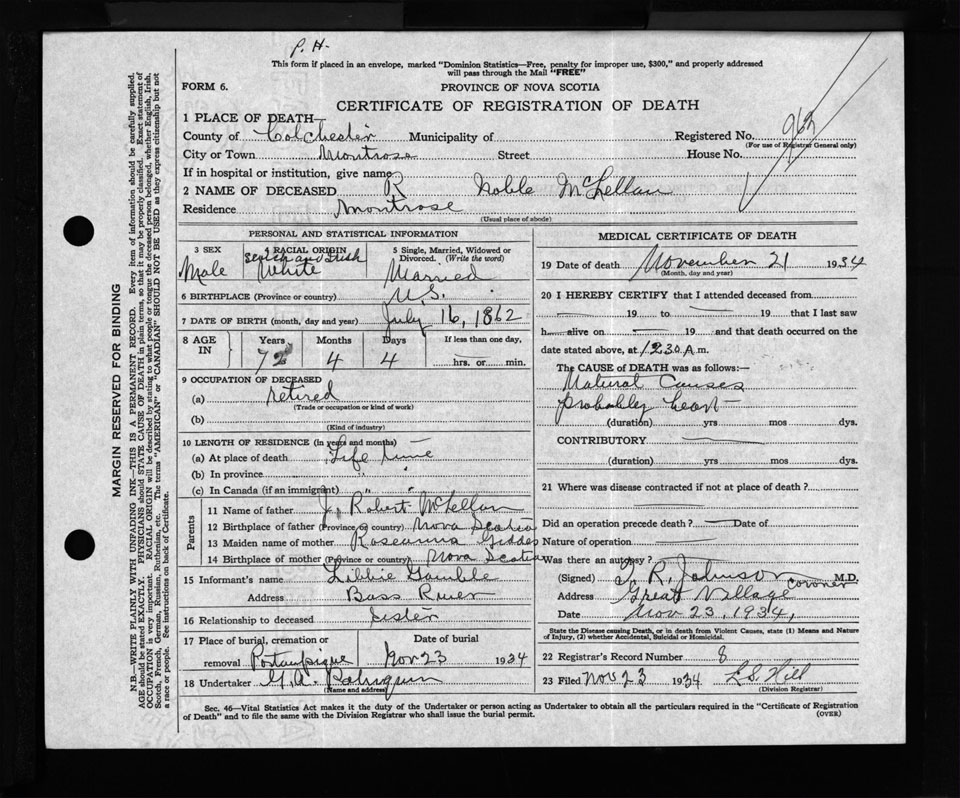 P. H.
This form if placed in an envelope, marked "Dominion Statistics—Free, penalty for improper use, $300," and properly addressed
will pass through the Mail "FREE"
FORM 6.
PROVINCE OF NOVA SCOTIA
CERTIFICATE OF REGISTRATION OF DEATH
1 PLACE OF DEATH—
County of Colchester Municipality of Registered No. 962
(For use of Registrar General only)
City or Town Montrose Street House No.
If in hospital or institution, give name
2 NAME OF DECEASED R Noble McLellan
Residence Montrose
(Usual place of abode)
PERSONAL AND STATISTICAL INFORMATION
3 SEX
Male
4 RACIAL ORIGIN
Scotch and Irish
White
5 Single, Married, Widowed or
Divorced. (Write the word)
Married
6 BIRTHPLACE (Province or country) U.S.
7 DATE OF BIRTH (month, day and year) July 16, 1862
8 AGE
IN
Years Months Days If less than one day,
72 4 4 hrs. or min.
9 OCCUPATION OF DECEASED
(a) retired
(Trade or occupation or kind of work)
(b)
(Kind of industry)
10 LENGTH OF RESIDENCE (in years and months)
(a) At place of death Life time
(b) In province " "
(c) In Canada (if an immigrant) " "
Parents
11 Name of father J. Robert McLellan
12 Birthplace of father (Province or country) Nova Scotia
13 Maiden name of mother Roseanna Giddes
14 Birthplace of mother (Province or Country) Nova Scotia
15 Informant's name Libbie Gamble
Address Bass River
16 Relationship to deceased Sister
17 Place of burial, cremation or
removal Portaupique
Date of burial
Nov 23 1934
18 Undertaker G. A.
(Name and address)
MEDICAL CERTIFICATE OF DEATH
19 Date of death November 21 1934
(Month, day and year)
20 I HEREBY CERTIFY that I attended deceased from
19 to 19 that I last saw
h alive on 19 and that death occurred on the
date stated above, at 12 30 A.m.
The CAUSE of DEATH was as follows:—
Natural Causes
probably heart
(duration) yrs mos dys.
CONTRIBUTORY
(duration) yrs mos dys.
21 Where was disease contracted if not at place of death?
Did an operation precede death? Date of
Nature of operation
Was there an autopsy?
(Signed) R. Johnson coroner M.D.
Address Great Village
Date Nov 23, 1934,
State the Disease causing Death, or in death from Violent Causes, state (1) Means and Nature
of Injury, (2) whether Accidental, Suicidal or Homicidal.
22 Registrar's Record Number 8
23 Filed Nov 23 1934 L.S. Hill
(Division Registrar)
Sec. 46—Vital Statistics Act makes it the duty of the Undertaker or person acting as Undertaker to obtain all the particulars required in the "Certificate of Registration
of Death" and to file the same with the Division Registrar who shall issue the burial permit.
(OVER)
MARGIN RESERVED FOR BINDING
N.B.—WRITE PLAINLY WITH UNFADING INK—THIS IS A PERMANENT RECORD. Every item of information should be carefully supplied.
AGE should be stated EXACTLY. PHYSICIANS should STATE CAUSE OF DEATH in plain terms, so that it may be properly classified. Exact statement of
OCCUPATION is very important. RACIAL ORIGIN will be described by stating to what people or tongue the deceased person belonged, whether English, Irish,
Scotch, French, German, Russian, Ruthenian, etc. The terms "AMERICAN" or "CANADIAN" SHOULD NOT BE USED as they express citizenship but not
a race or people. See instructions on back of Certificate.